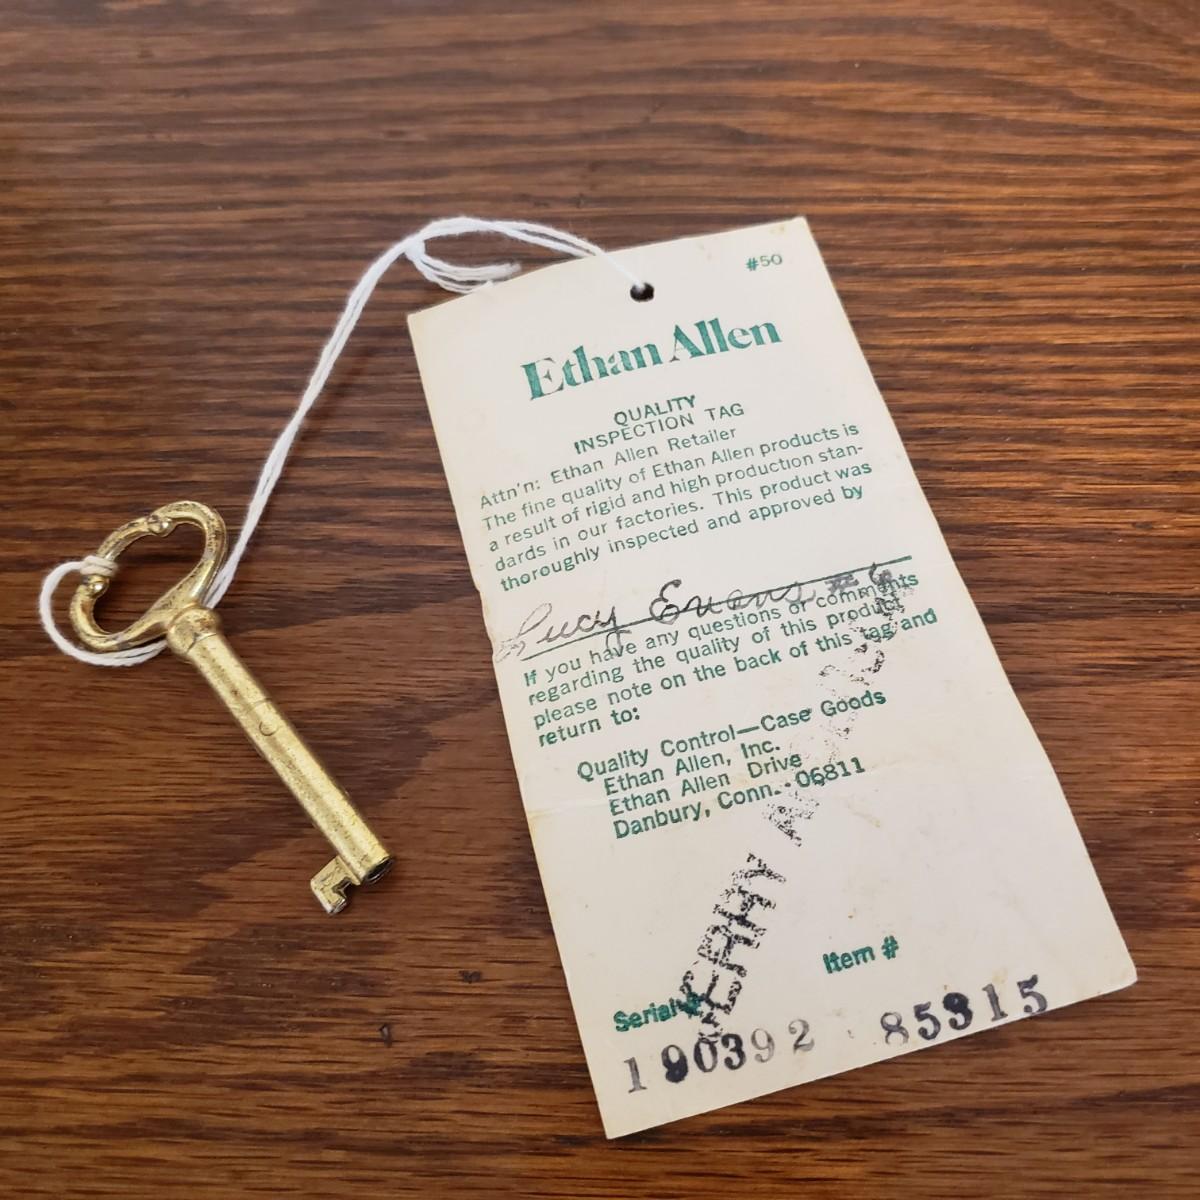 #50
Ethan Allen
QUALITY
INSPECTION TAG
Attn'n: Ethan Allen Retailer
The fine quality of Ethan Allen products is
a result of rigid and high production stan-
dards in our factories. This product was
thoroughly inspected and approved by
Lucy Evans #6
If you have any questions or comments
regarding the quality of this product
please note on the back of this tag and
return to:
Quality Control—Case Goods
Ethan Allen, Inc.
Ethan Allen Drive
Danbury, Conn. 06811
Item #
Serial #
190392 85915